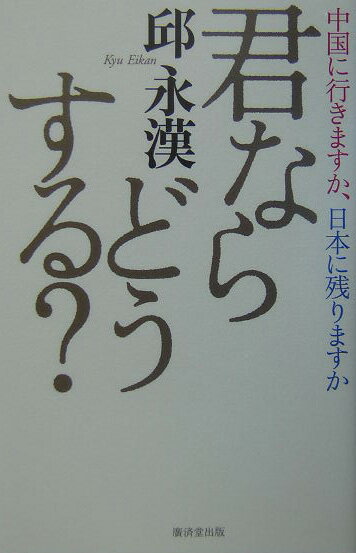 中国に行きますか、日本に残りますか
君なら
どう
する?
邱永漢
Kyu Eikan
廣済堂出版